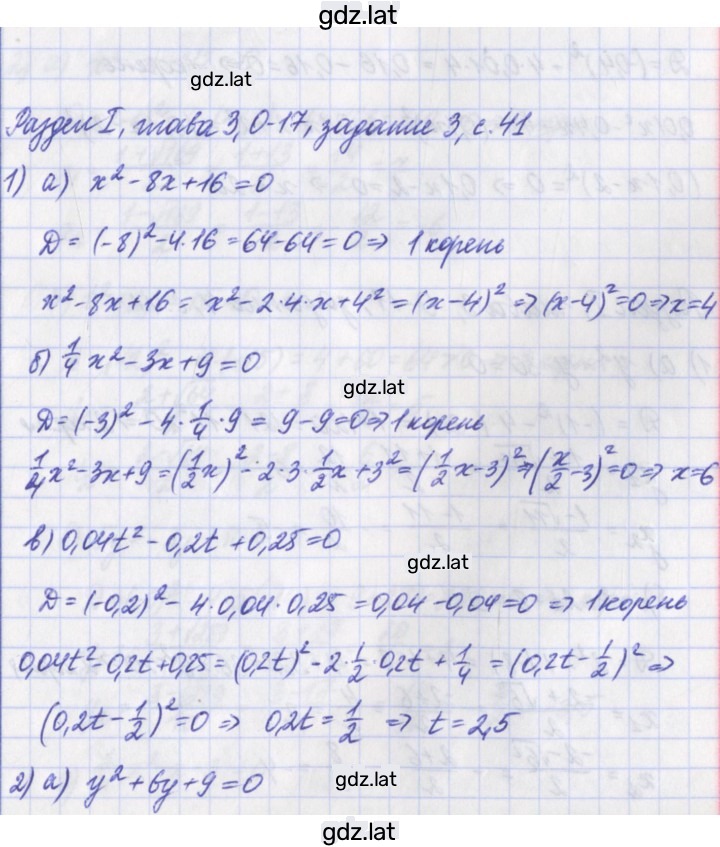 gdz.lat
gdz.lat
Раздел I, глава 3, О-17, задание 3, с. 41
1) а) x² - 8x + 16 = 0
D = (-8)² - 4·16 = 64 - 64 = 0 ⇒ 1 корень
x² - 8x + 16 = x² - 2·4·x + 4² = (x - 4)² ⇒ (x - 4)² = 0 ⇒ x = 4
б) 1/4 x² - 3x + 9 = 0
gdz.lat
D = (-3)² - 4·1/4·9 = 9 - 9 = 0 ⇒ 1 корень
1/4 x² - 3x + 9 = (1/2 x)² - 2·3·1/2 x + 3² = (1/2 x - 3)² ⇒ (x/2 - 3)² = 0 ⇒ x = 6
в) 0,04t² - 0,2t + 0,25 = 0
gdz.lat
D = (-0,2)² - 4·0,04·0,25 = 0,04 - 0,04 = 0 ⇒ 1 корень
0,04t² - 0,2t + 0,25 = (0,2t)² - 2·1/2·0,2t + 1/4 = (0,2t - 1/2)² ⇒
(0,2t - 1/2)² = 0 ⇒ 0,2t = 1/2 ⇒ t = 2,5
2) а) y² + 6y + 9 = 0
gdz.lat
gdz.lat